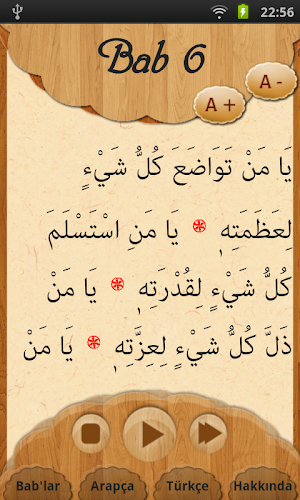 22:56
Bab 6
A +
A -
يَا مَنْ تَوَاضَعَ كُلُّ شَيْءٍ
لِعَظَمَتِهِ ۞ يَا مَنِ اسْتَسْلَمَ
كُلُّ شَيْءٍ لِقُدْرَتِهِ ۞ يَا مَنْ
ذَلَّ كُلُّ شَيْءٍ لِعِزَّتِهِ ۞ يَا مَنْ
Bab'lar Arapça Türkçe Hakkında